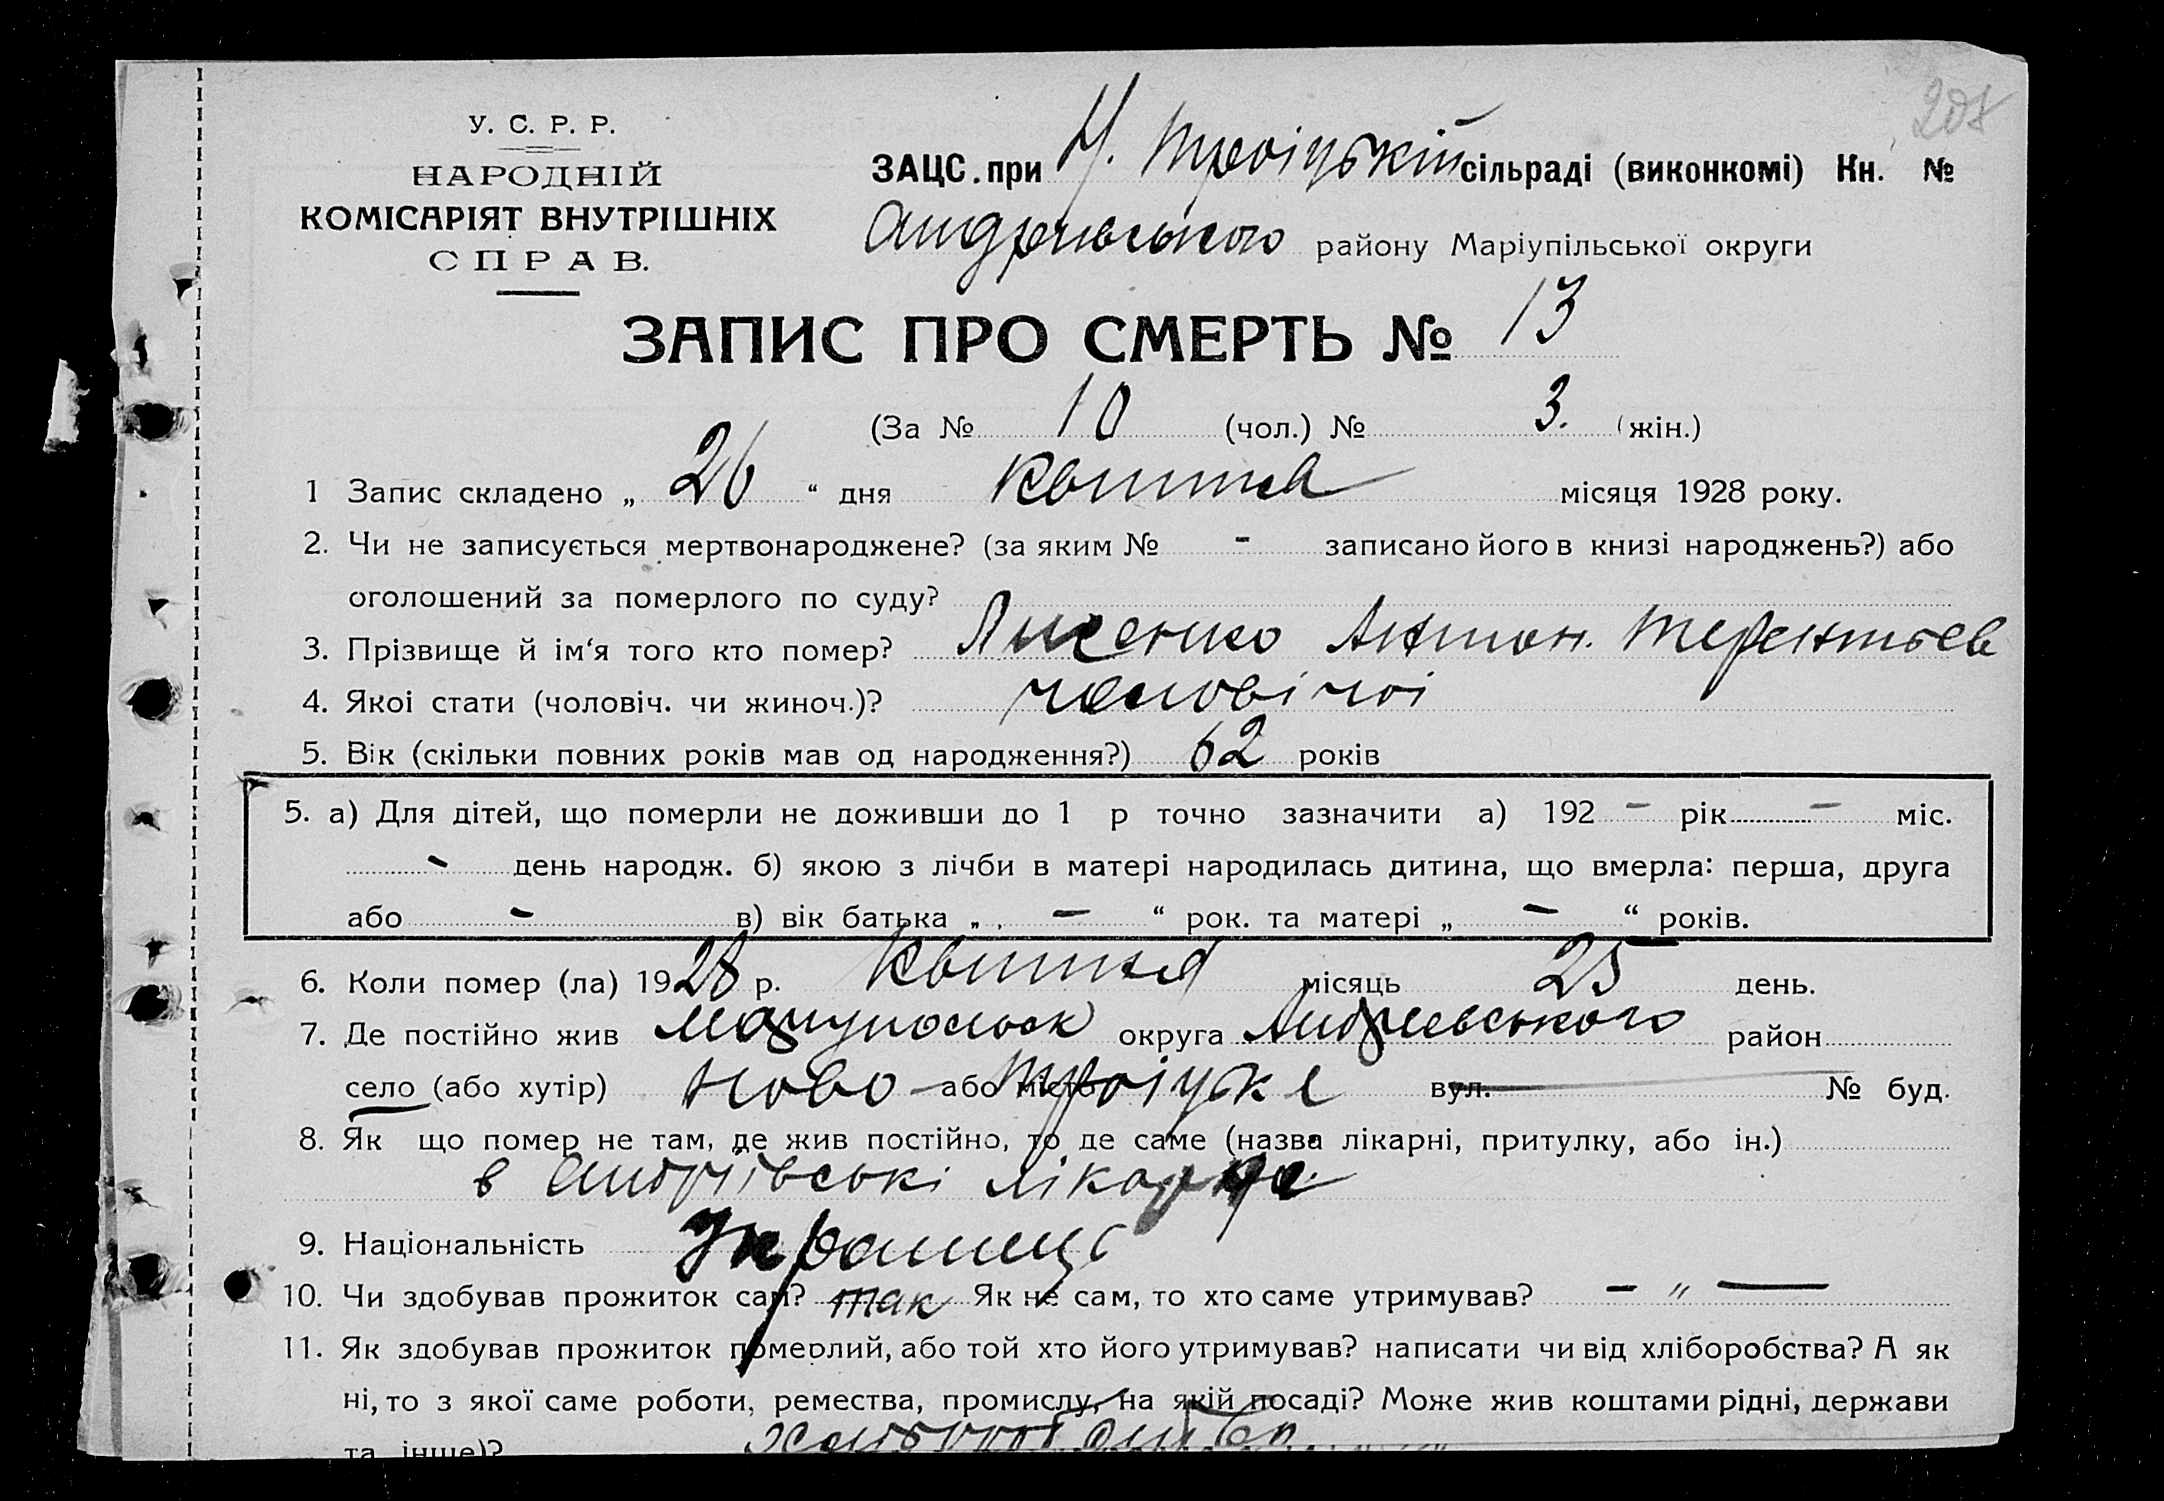 208
У. С. Р. Р.
НАРОДНІЙ
КОМІСАРІЯТ ВНУТРІШНІХ
СПРАВ.
ЗАЦС. при Н. Троіцькій сільраді (виконкомі) Кн. №
Андріївського району Маріупільської округи
ЗАПИС ПРО СМЕРТЬ № 13
(За № 10 (чол.) № 3. (жін.)
1 Запис складено „ 26 “ дня Квитня місяця 1928 року.
2. Чи не записується мертвонароджене? (за яким № - записано його в книзі народжень?) або
оголошений за померлого по суду?
3. Прізвище й ім‘я того кто помер? Лисенко Антон. Терентьев
4. Якоі стати (чоловіч. чи жиноч.)? чоловічоі
5. Вік (скільки повних років мав од народження?) 62 років
5. а) Для дітей, що померли не доживши до 1 р точно зазначити а) 192 – рік – міс.
- день народж. б) якою з лічби в матері народилась дитина, що вмерла: перша, друга
або - в) вік батька „ . – “ рок. та матері „ – “ років.
6. Коли помер (ла) 1928 р. Квитня місяць 25 день.
7. Де постійно жив Мариупольск округа Андреевського район
село (або хутір) Ново-Троіцке або місто вул. № буд.
8. Як що помер не там, де жив постійно, то де саме (назва лікарні, притулку, або ін.)
в Андріівські лікарне
9. Національність Украинец
10. Чи здобував прожиток сам? так Як не сам, то хто саме утримував? – " —
11. Як здобував прожиток померлий, або той хто його утримував? написати чи від хліборобства? А як
ні, то з якої саме роботи, ремества, промислу, на якій посаді? Може жив коштами рідні, держави
та інше)?